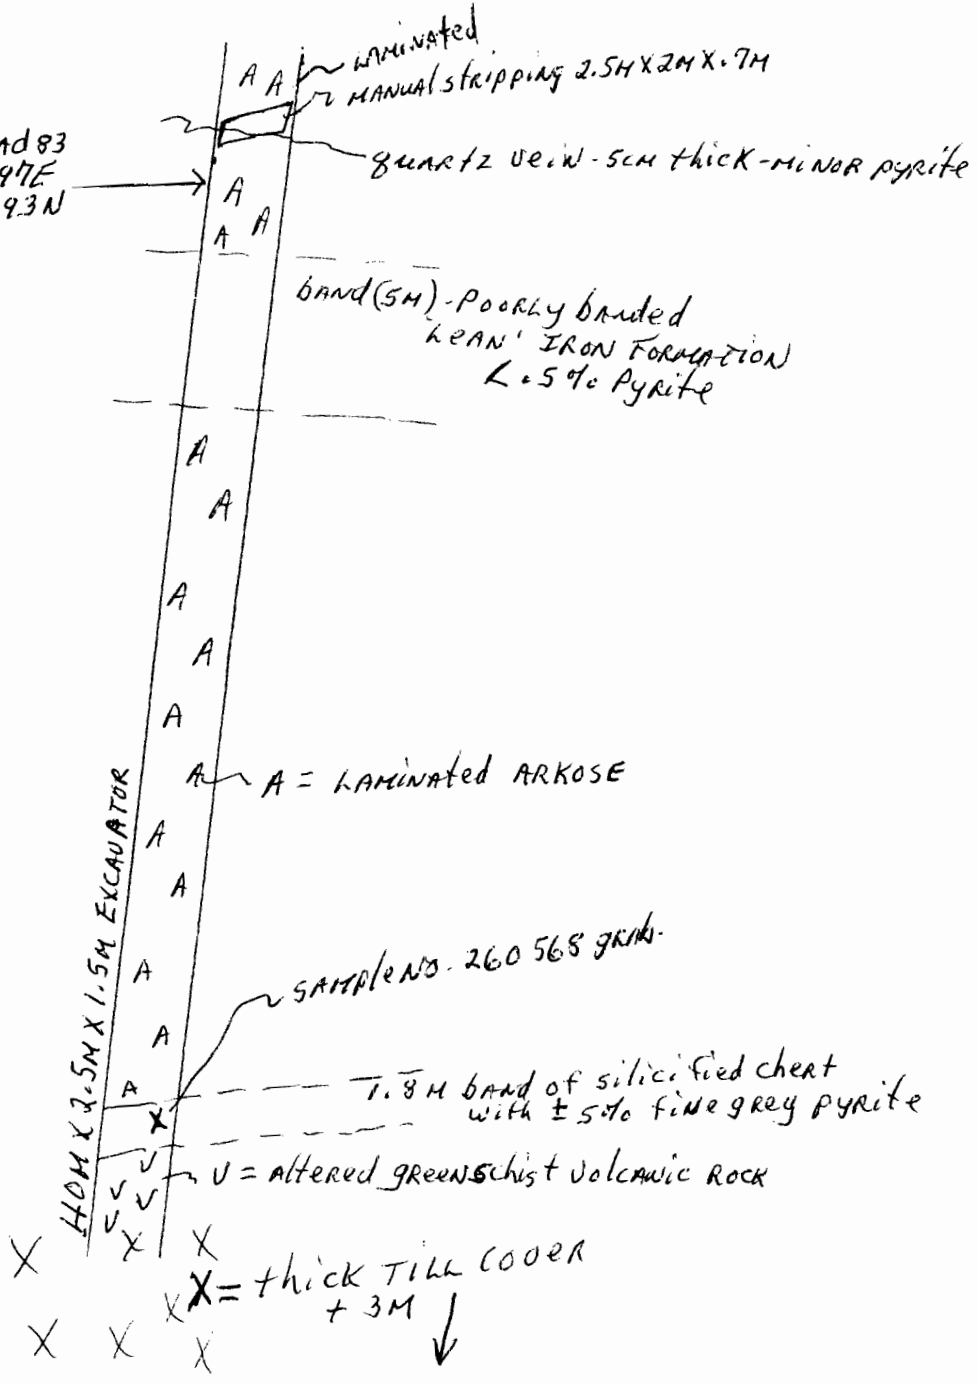 LAMINAted
A A
MANUAL stripping 2.5M X 2M X .7M
Ad 83
97E
93N
quartz vein - 5cm thick - MINOR pyrite
A
A
A
bAND (5M) - POORLY banded
LEAN' IRON FORMATION
< .5% Pyrite
A
A
A
A
A
A
A = LAMINAted ARKOSE
A
A
40M X 2.5M X 1.5M EXCAVATOR
A
SAMPLE NO. 260 568 grab.
A
A
1.8M bAND of silicified chert
with ± 5% fine grey pyrite
X
V
V = Altered greenschist volcanic ROCK
V V
V
X X X
X = thick TILL COVER
+ 3M
X
X X X